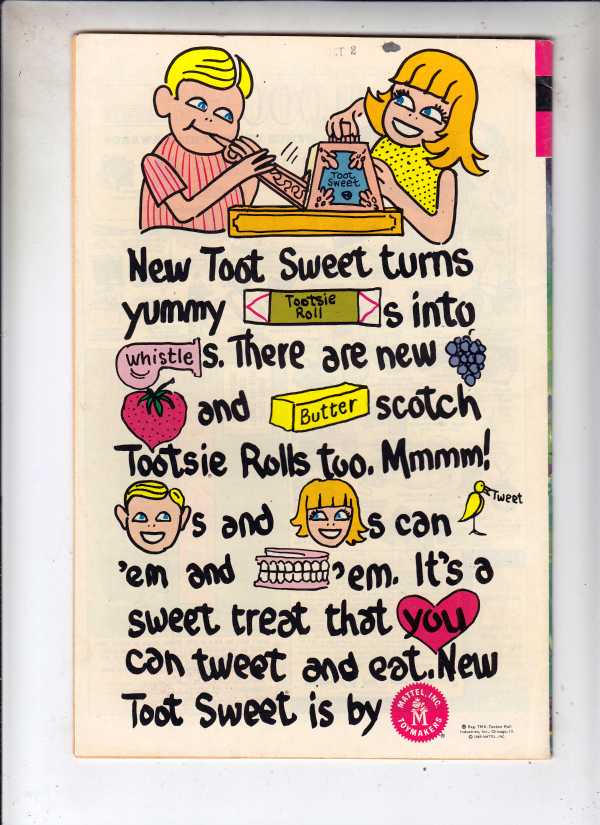 Toot
Sweet
New Toot Sweet turns
yummy Tootsie Roll s into
whistle s. There are new
and Butter scotch
Tootsie Rolls too. Mmmm!
s and s can Tweet
'em and 'em. It's a
sweet treat that you
can tweet and eat. New
Toot Sweet is by MATTEL, INC. M TOYMAKERS
® Reg. TM'S-Tootsie Roll
Industries, Inc., Chicago, Ill.
© 1969 MATTEL, INC.